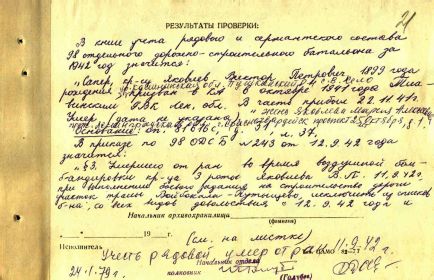 21
РЕЗУЛЬТАТЫ ПРОВЕРКИ:
В книге учета рядового и сержантского состава
98 отдельного дорожно-строительного баталиона за
1942 год значится:
"Сапер, кр-ц Яковлев Виктор Петрович, 1899 года
рождения, призван в КА 8 октября 1941 года
РВК Лен. обл. В часть прибыл 22.11.41г.
Умер, дата не указана
Основание: оп. д. л. 37,
В приказе по 98 ОДСБ №243 от 12.9.42 года
значится:
"§3. Умершего от ран во время воздушной бом-
бандировки кр-ца 3 роты Яковлева В.П. 11.9.42г.
при выполнении боевого задания на строительстве дороги
участок трассы исключить из списков
б-на, со всех видов довольствия с 12.9.42 года.
Начальник архивохранилища
(фамилия)
" " 19 г. (см. на листке)
Исполнитель
Учесть рядовой умер от ран 11.9.42
Начальник отдела
24.1.79г. полковник